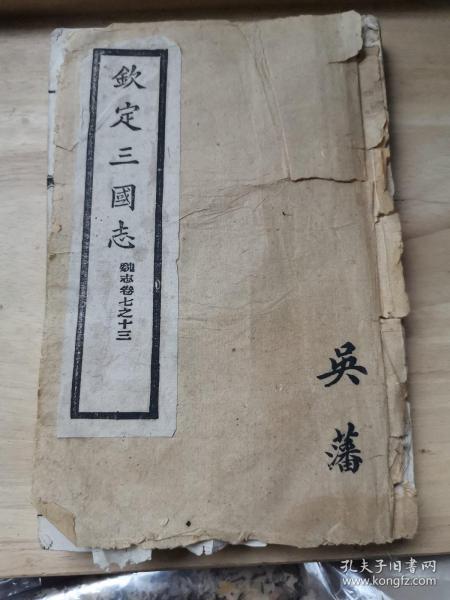 欽定三國志
魏志卷七之十三
吳藩
孔夫子旧书网
www.kongfz.com